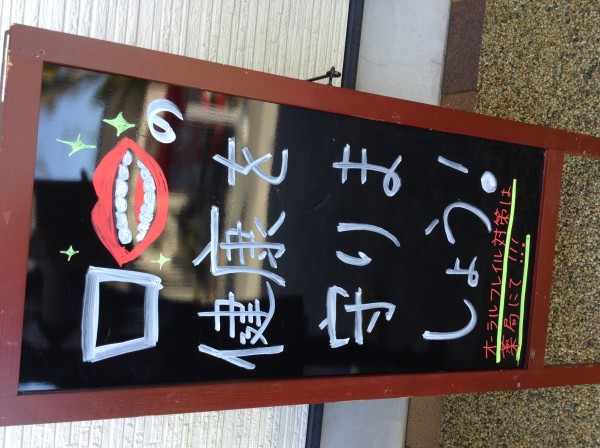 口の
健康を
守りま
しょう!
オーラルフレイル対策は
薬局にて!!!